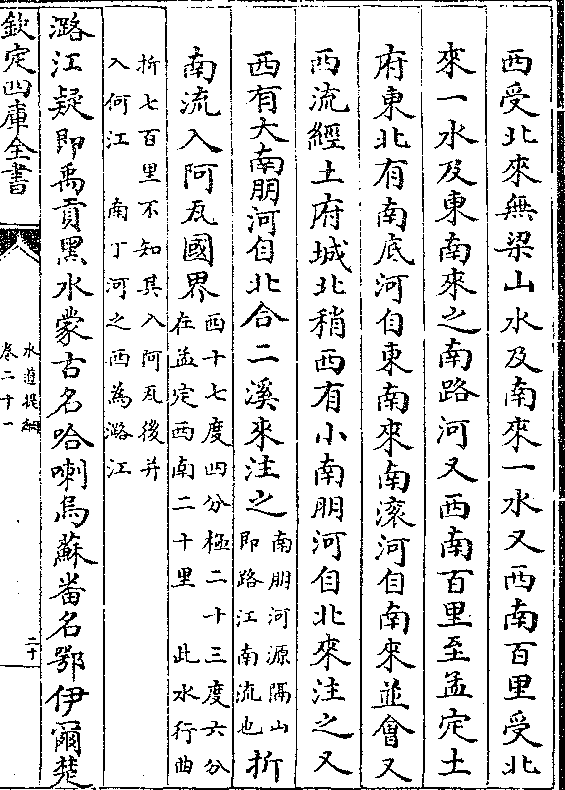 西受北來無梁山水及南來一水又西南百里受北
來一水及東南來之南路河又西南百里至孟定土
府東北有南底河自東南來南滚河自南來並會又
西流經土府城北稍西有小南朋河自北來注之又
西有大南朋河自北合二溪來注之南朋河源隔山即路江南流也折
南流入阿瓦國界西十七度四分極二十三度六分在孟定西南二十里 此水行曲
折七百里不知其入阿瓦後并入何江 南丁河之西為潞江
潞江疑即禹貢黑水蒙古名哈喇烏蘇畨名鄂伊爾楚
欽定四庫全書
水道提綱
卷二十一
二十